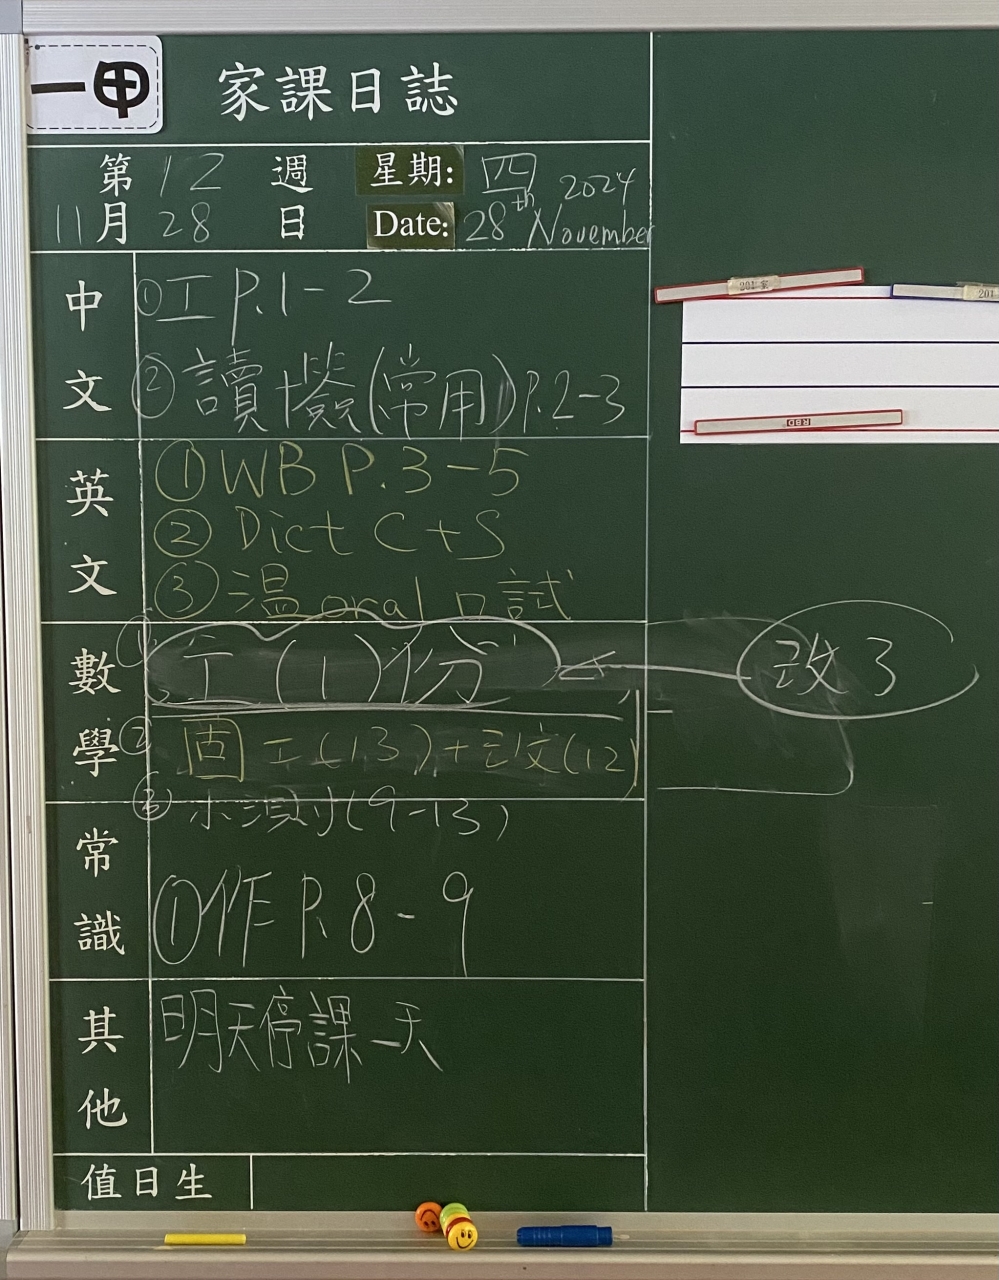 一甲 家課日誌
第 12 週 星期: 四 2024
11月 28 日 Date: 28th November
中文
①工 P.1-2
②讀 (常用) P.2-3
英文
①WB P.3-5
②Dict C+S
③温 oral 口試
數學
①工 (1)份 改 3
② 工(13)+改(12)
(9-13)
常識
①作 P.8-9
其他
明天停課一天
值日生
201
201
RBD